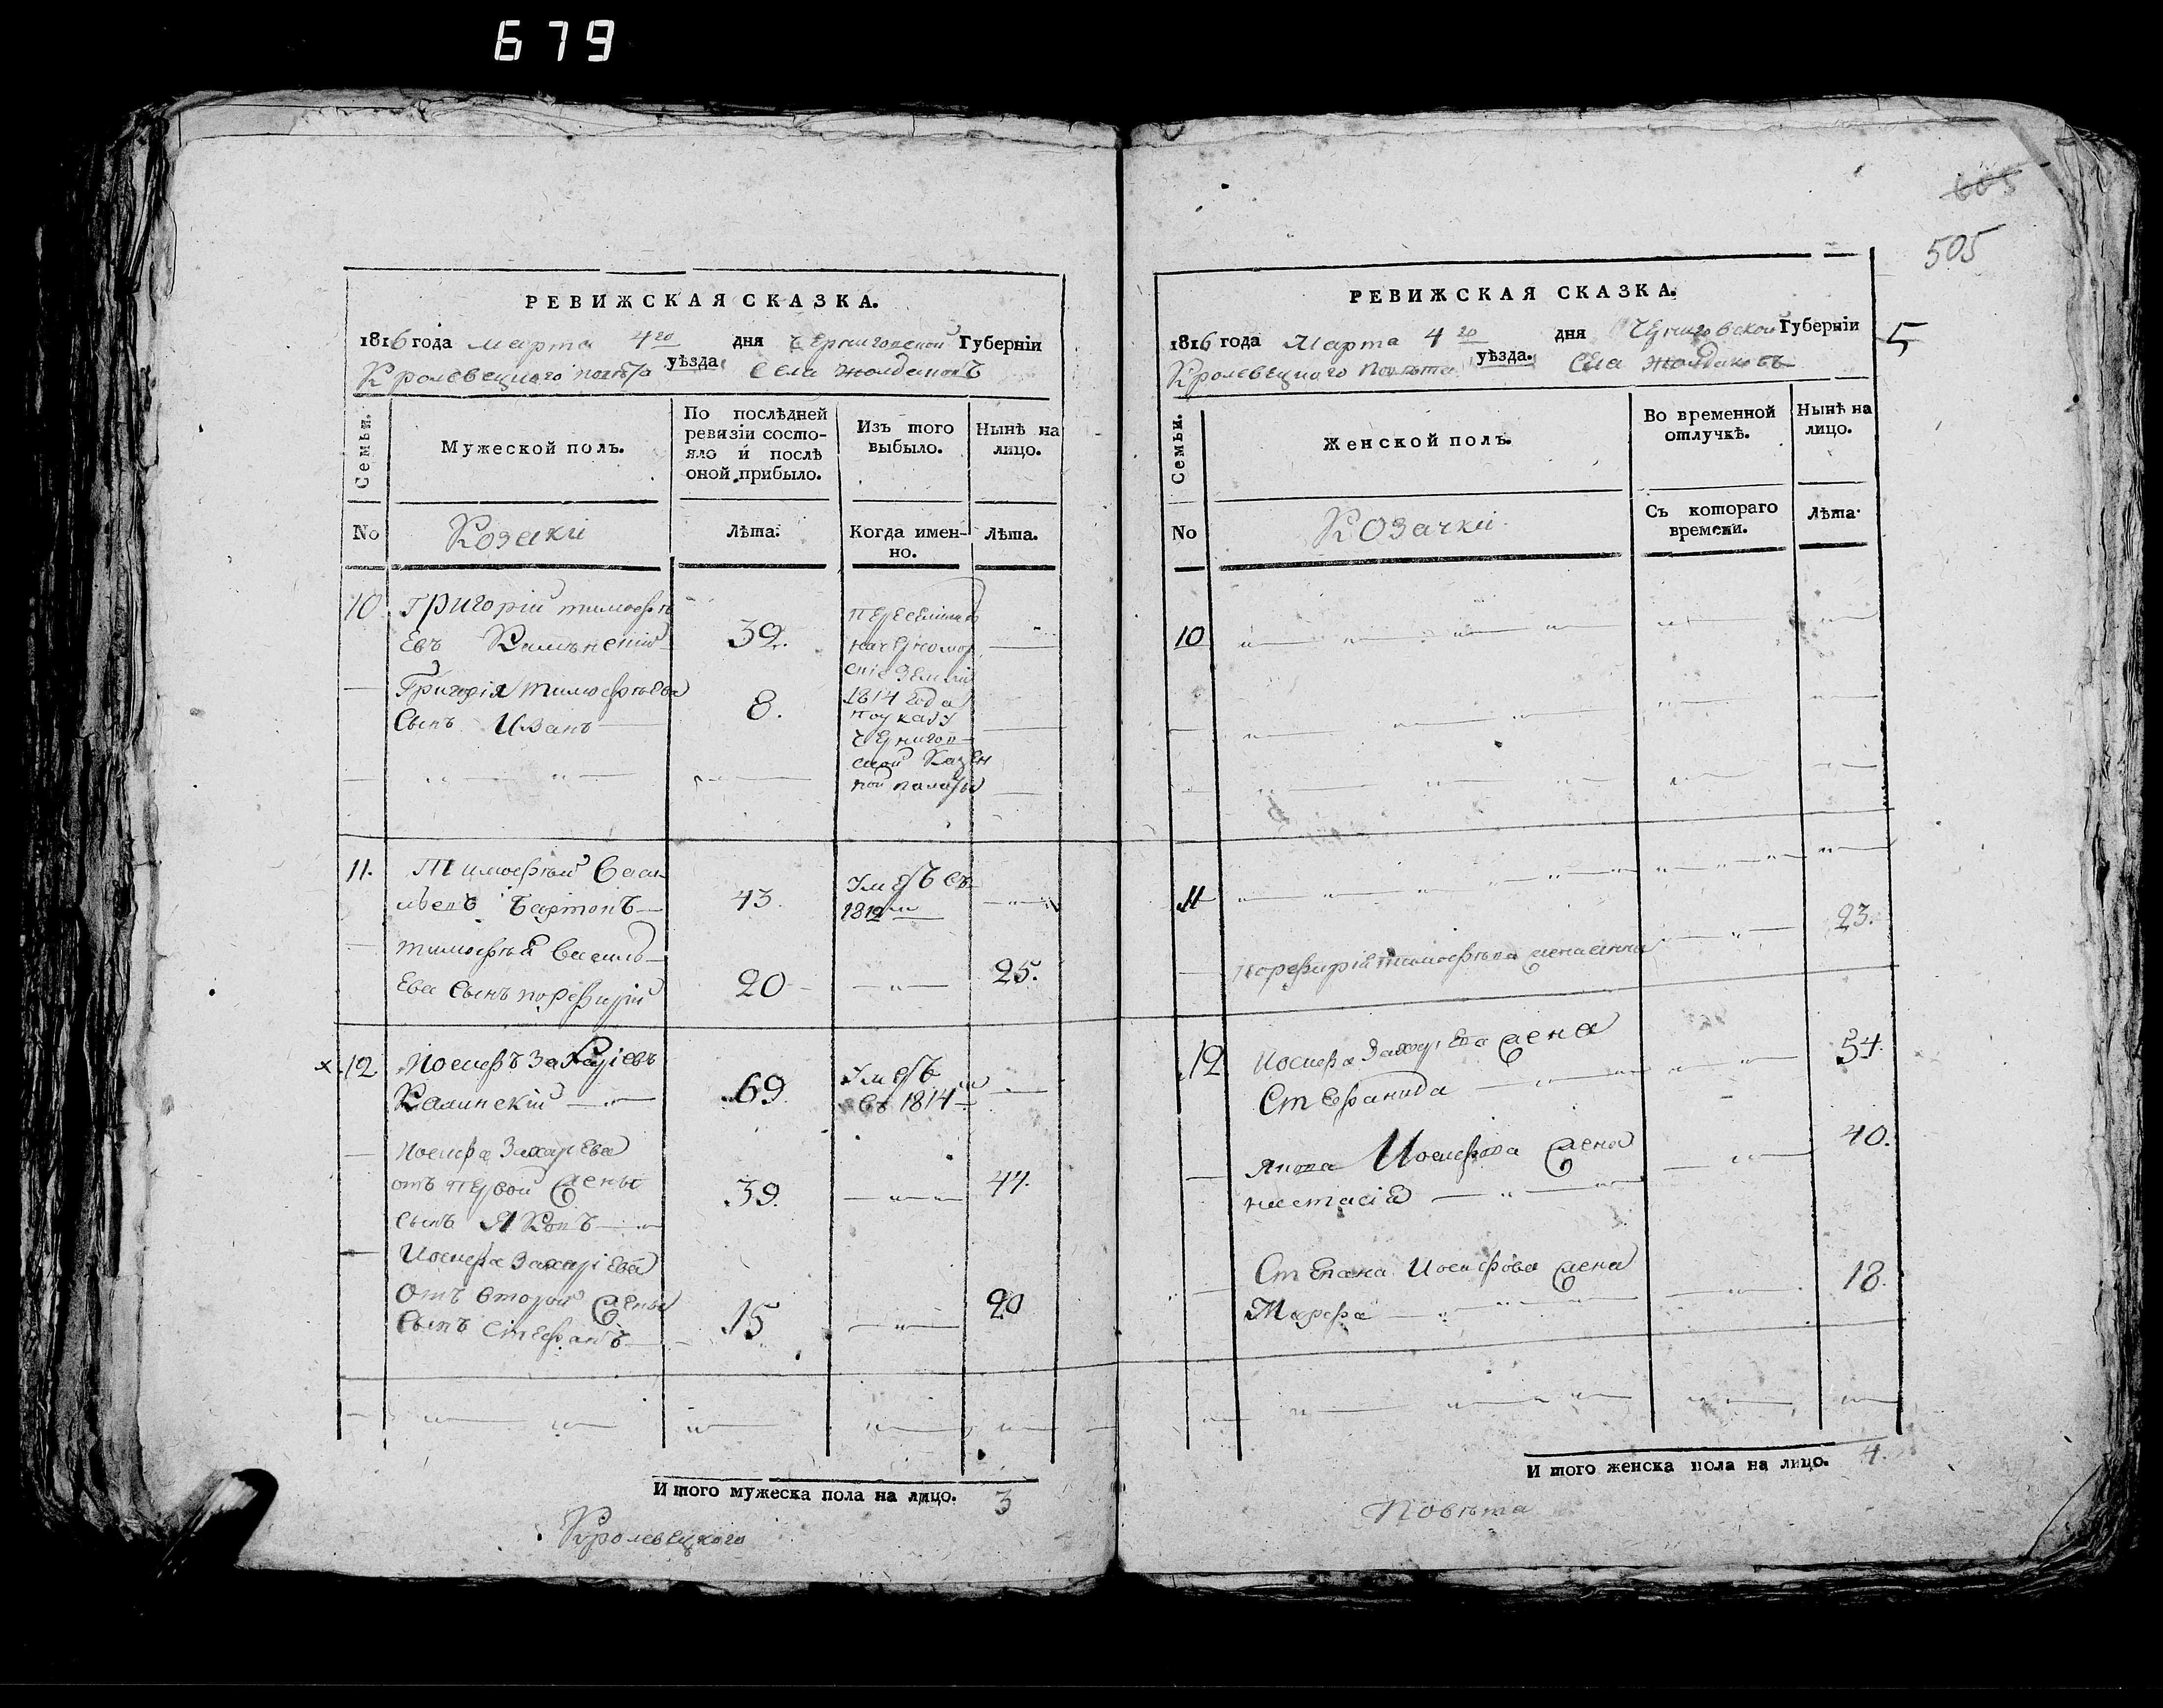 679
605
505
5
РЕВИЖСКАЯ СКАЗКА.
1816 года марта 4го дня Черниговской Губерніи
Кролевецкого повѣта уѣзда села Жолдаковъ
Семьи.
Мужеской полъ.
По послѣдней
ревизіи состо-
яло и послѣ
оной прибыло.
Изъ того
выбыло.
Нынѣ на
лицо.
No
Козаки
Лѣта.
Когда имен-
но.
Лѣта.
10. Григорій Тимофѣ
евъ
39.
Григорія Тимофѣева
Сынъ Иванъ
8.
переселился
на черномор
скіе земли
1814 года
по указу
Чернигов
ской Казен
ной палаты
11. Тимофѣй Васи
льевъ
43.
умеръ въ
1812м
Тимофѣя Василь
ева Сынъ Порфирій
20
25.
х 12 Иосифъ Захаріевъ
Калинскій
69.
умеръ
въ 1814м
Иосифа Захаріева
отъ первой жены
сынъ Яковъ
39.
44.
Иосифа Захаріева
отъ второй жены
Сынъ Стефанъ
15
20
И того мужеска пола на лицо. 3
Кролевецкого
РЕВИЖСКАЯ СКАЗКА.
1816 года Марта 4го дня Черниговской Губерніи
Кролевецкого повѣта уѣзда. Села Жолдаковъ
Семьи.
Женской полъ.
Во временной
отлучкѣ.
Нынѣ на
лицо.
No
Козачки
Съ котораго
времени.
Лѣта.
10
11
Порфирія Тимофѣева жена Анна
23.
12 Иосифа Захаріева жена
Стефанида
54.
Якова Иосифова жена
Настасія
40.
Степана Иосифова жена
Марфа
18.
И того женска пола на лицо. 4.
Повѣта